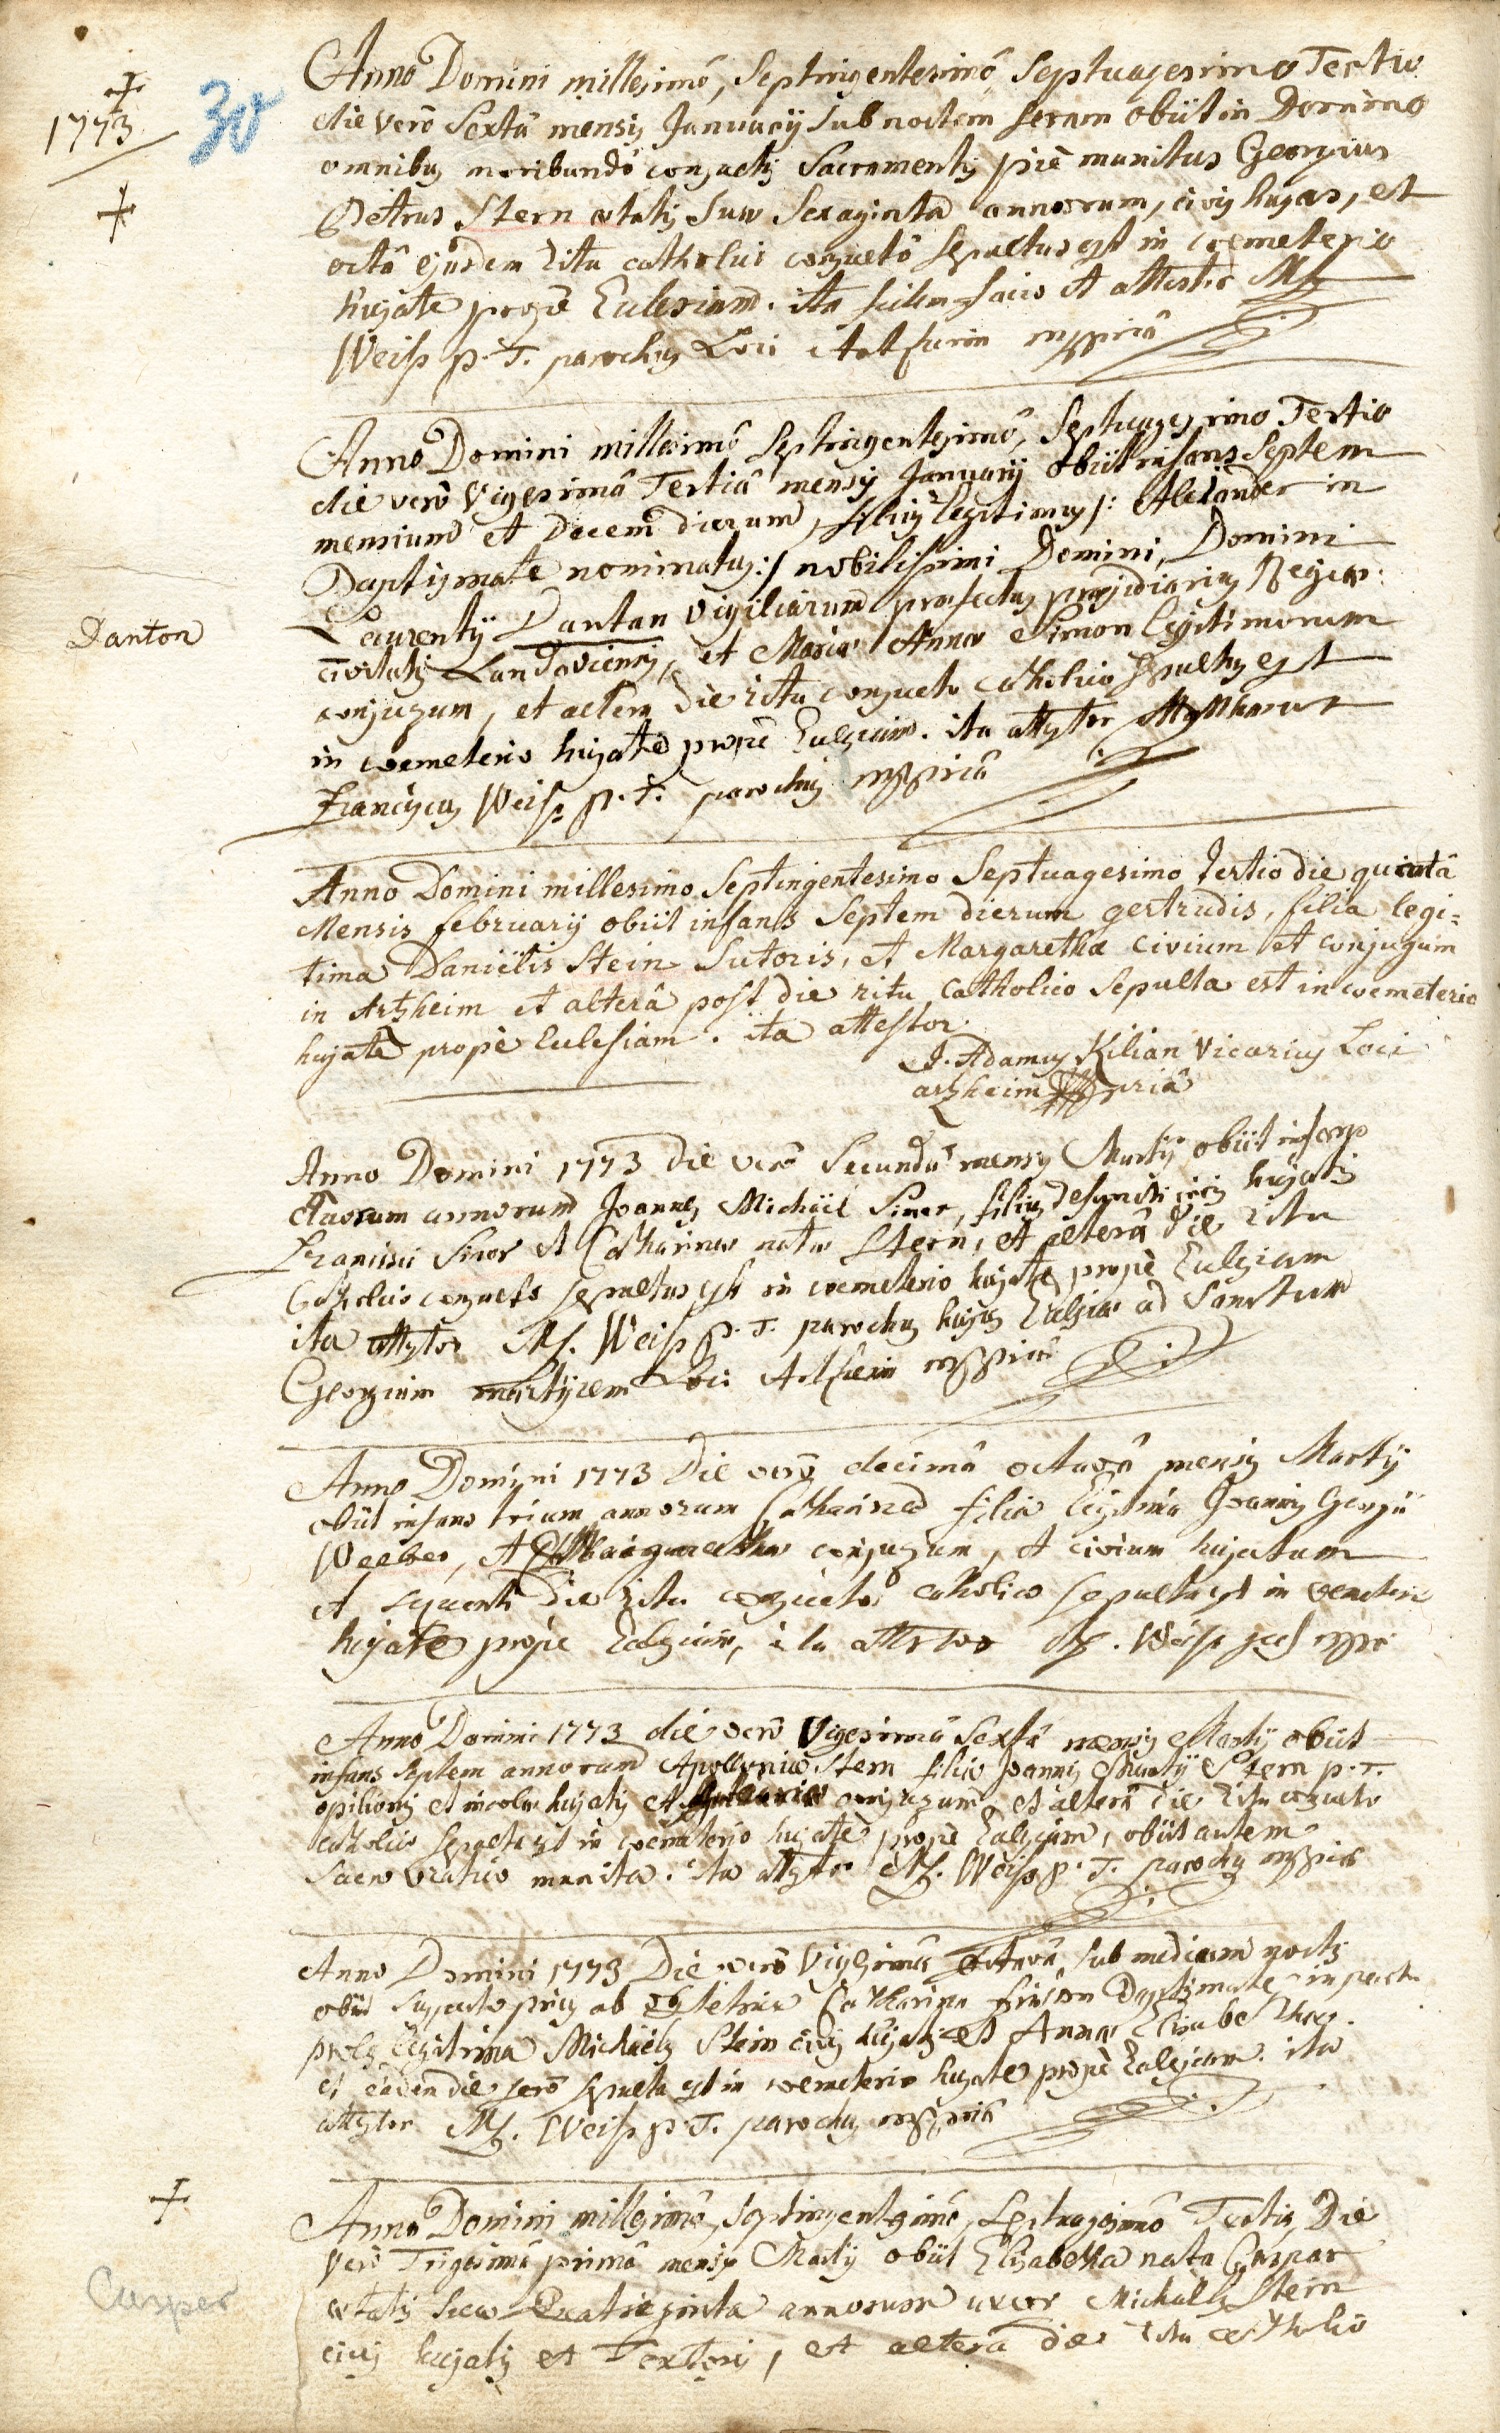 1773
30
Anno Domini millesimô, Septingentesimô Septuagesimo Tertio
die verô Sextâ mensis Januarij sub noctem seram obiit in Domino
omnibus moribundô consuetis Sacramentis piè munitus Georgius
Petrus Stern ætatis suæ Sexaginta annorum, civis hujas, et
octâ ejusdem ritu catholico consuetô sepultus est in coemeterio
hujate propè Ecclesiam. ita fidem facio et attestor M.
Weiss p. T. parochus Loci Artsheim mppriâ
Anno Domini millesimô Septingentesimô, Septuagesimo Tertio
die verô Vigesimâ Tertiâ mensis Januarij obiit infans Septem
mensium et Decem dierum, filius legitimus /: Alexander in
Baptismate nominatus :/ nobilissimi Domini, Domini
Laurentij Dantan Vigiliarum præfectus præsidiarius Regiæ
civitatis Landaviensis, et Mariæ Annæ Simon legitimorum
conjugum, et alterâ die ritu consueto catholico sepultus est
in coemeterio hujate propè Ecclesiam. ita attestor Matthæus
Franciscus Weiss p. t. parochus mppriâ
Danton
Anno Domini millesimo Septingentesimo Septuagesimo tertio die quintâ
Mensis februarij obiit infans Septem dierum gertrudis, filia legi=
tima Daniëlis Stein Sutoris, et Margarethæ civium et conjugum
in Artzheim et alterâ post die ritu catholico Sepulta est in coemeterio
hujate propè Ecclesiam. ita attestor
J. Adamus Kilian Vicarius Loci
artzheim mppriâ
Anno Domini 1773 die verô Secundâ mensis Martij obiit infans
duorum annorum Joannes Michäel Siner, filius defuncti civis hujatis
Francisci Siner et Catharinæ natæ Stern, et alterâ die ritu
Catholico consueto sepultus est in coemeterio hujate propè Ecclesiam
ita attestor M. Weiss p. T. parochus hujus Ecclesiæ ad Sanctum
Georgium martyrem Loci Artsheim mppriâ
Anno Domini 1773 Die verô decimâ octavâ mensis Martij
obiit infans trium annorum Catharina filia legitima Joannis Georgii
Weeber, et Margarethæ conjugum, et civium hujatum
et sequenti die ritu consueto catholico sepulta est in coemeterio
hujate propè Ecclesiam, ita attestor M. Weiss mppria
Anno Domini 1773 die verô Vigesimâ Sextâ mensis Martij obiit
infans septem annorum Apollonia Stern filia Joannis Martij Stern p. T.
opilionis et incolæ hujatis et conjugum, et alterâ die ritu consueto
catholico sepulta est in coemeterio hujate propè Ecclesiam, obiit autem
Sacro viatico munita. ita attestor M. Weiss p. T. parochus mppria
Anno Domini 1773 Die verô Vigesimâ octavâ, sub mediam noctis
obiit suscepto prius ab obstetrice Catharina Baptismate in partu
proles legitima Michäelis Stein civis hujatis et Annæ Elisabethæ.
et eâdem die serô sepulta est in coemeterio hujate propè Ecclesiam. ita
attestor M. Weiss p. T. parochus mppriâ
Anno Domini millesimô, septingentesimô, Septuagesimô Tertio, Die
verò Trigesimâ primâ mensis Martij obiit Elisabetha nata Caspar
ætatis suæ Quatraginta annorum uxor Michaelis Stein
civis hujatis et Textoris, et alterâ die ritu catholico
Casper